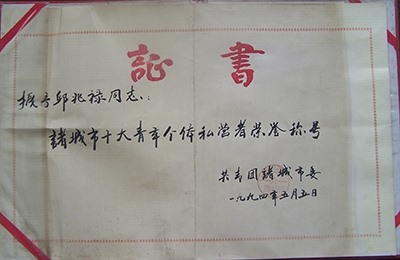 証書
授予邱兆禄同志：
諸城市十大青年个体私营者荣誉称号
共青团諸城市委
一九九四年五月五日